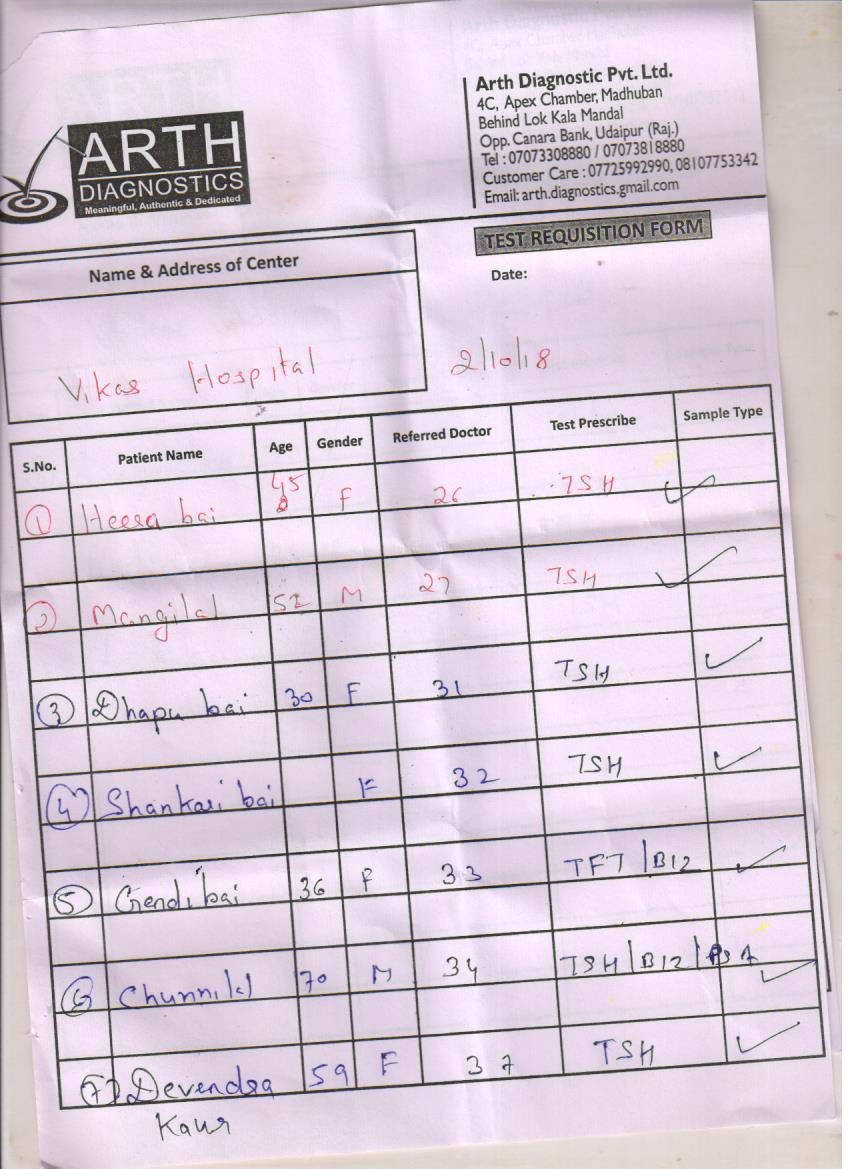 ARTH
DIAGNOSTICS
Meaningful, Authentic & Dedicated
Arth Diagnostic Pvt. Ltd.
4C, Apex Chamber, Madhuban
Behind Lok Kala Mandal
Opp. Canara Bank, Udaipur (Raj.)
Tel : 07073308880 / 07073818880
Customer Care : 07725992990, 08107753342
Email: arth.diagnostics.gmail.com
TEST REQUISITION FORM
Name & Address of Center
Date:
Vikas Hospital
2/10/18
S.No. Patient Name Age Gender Referred Doctor Test Prescribe Sample Type
1 Heera bai 45 F 26 TSH ✓
2 Mangilal 52 M 27 TSH ✓
3 Dhapu bai 30 F 31 TSH ✓
4 Shankari bai F 32 TSH ✓
5 Gendi bai 36 F 33 TFT | B12 ✓
6 Chunnilal 70 M 34 TSH | B12 | PSA ✓
7 Devendra 59 F 37 TSH ✓
Kaur